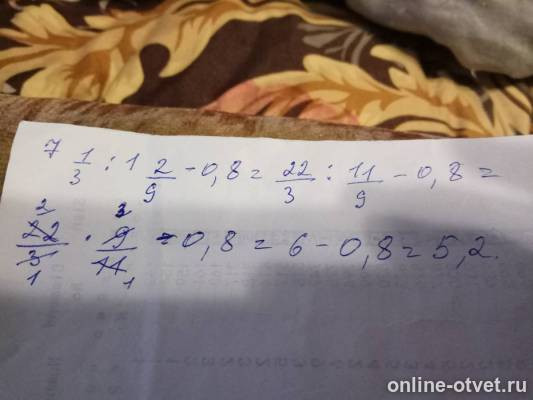 7 1/3 : 1 2/9 - 0,8 = 22/3 : 11/9 - 0,8 =
22/3 · 9/11 - 0,8 = 6 - 0,8 = 5,2.
online-otvet.ru